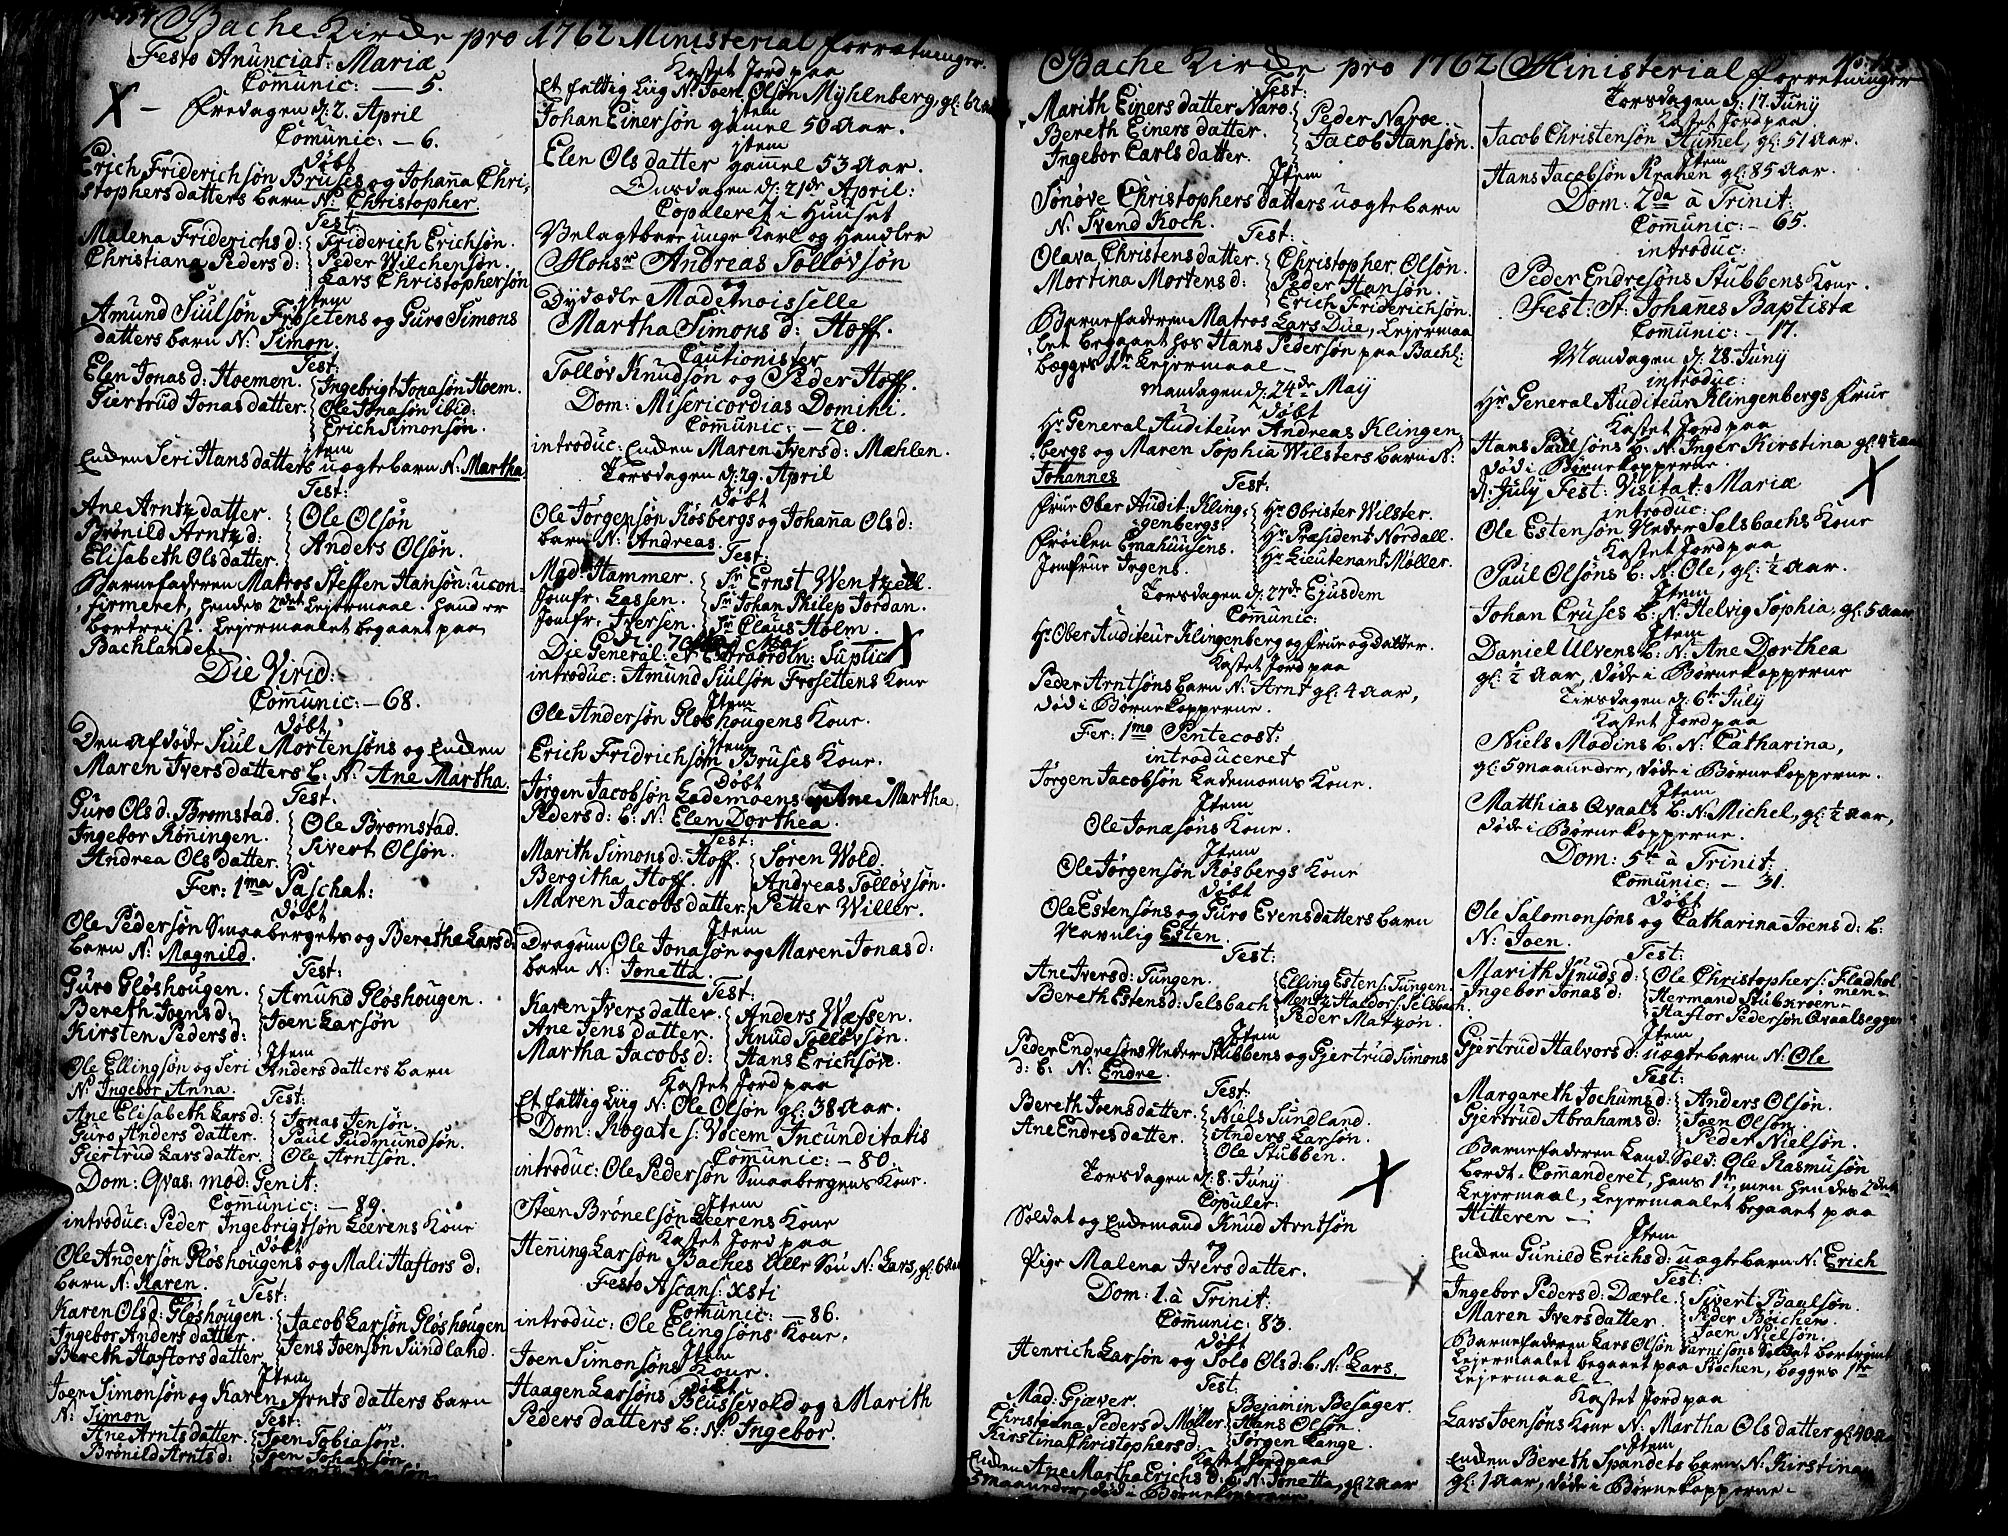 Bache Kirche pro 1762 Ministerial Forretninger.
Festo Anunciat: Mariæ
Comunic: — 5.
Fredagen d: 2. April
Comunic: — 6.
Døbt
Erich Friderichsøn Bruses og Johanna Chri,
stophersdatters barn N: Christopher
Test
Malena Friderichs d:
Friderich Erichsøn.
Christiana Peders d:
Peder Wilchensøn.
Lars Christophersøn
Item
Amund Siulsøn Frosetens og Guro Simons
datters barn N: Simon.
Test:
Elen Jonas d: Hoemon.
Ingebrigt Jonasøn Hoem.
Giertrud Jonas datter.
Ole Jonasøn ibid:
Erich Simonsøn.
Item
Enken Seri Hansdatters uægte barn N: Martha
Test:
Ane Arntz datter.
Ole Olsøn
Brønild Arntz d:
Anders Olsøn.
Elisabeth Olsdatter.
Barnefaderen Matros Steffen Hansøn: ucon
firmeret, hendes 2det Lejermaal. hand er
bortreist. Lejermaalet begaaet paa
Bachlandet.
Die Virid:
Comunic: — 68.
Døbt
Den afdøde Siul Mortensøns og Enken
Maren Iversdatters b: N: Ane Martha.
Test:
Guro Ols d: Bromstad.
Ole Bromstad.
Ingebor Rønningen.
Sivert Olsøn.
Andrea Olsdatter.
Fer: 1ma Paschat:
Døbt
Ole Pedersøn Smaabergets og Berethe Lars d:
barn N: Magnild.
Test:
Guro Gløshougen.
Amund Gløshougen.
Bereth Joens d:
Joen Larsøn
Kirsten Peders d:
Item
Ole Ellingsøn og Seri Anders datters barn
N: Ingebor Anna.
Test:
Ane Elisabeth Lars d:
Jonas Jensøn.
Guro Anders datter.
Paul Gudmundsøn.
Giertrud Larsdatter.
Ole Arntsøn.
Dom: Qvas: mod: Genit:
Comunic: — 89.
introduc: Peder Ingebrigtsøn Leerens Kone
Døbt
Ole Andersøn Gløshougens og Mali Haftors d:
barn N: Karen.
Test:
Karen Ols d: Gløshougen.
Jacob Larsøn Gløshougen
Ingebor Anders datter.
Jens Joensøn Sundland.
Bereth Haftors datter.
Item
Joen Simonsøn og Karen Arnts datters barn
N: Simon
Test:
Ane Arntsdatter.
Joen Tobiasøn.
Brønild Arnts d:
Joen Johansøn
Kastet Jord paa
Et fattig Liig N: Joen Olsøn Myhlenberg, gl: 62 aar
Item
Johan Einersøn gamel 50 Aar.
Item
Elen Olsdatter gamel 53 Aar.
Onsdagen d: 21de April:
Copuleret i Huuset
Velagtbare unge Karl og Handler
Mohsr Andreas Solløvsøn
og
Dydædle Mademoisselle
Martha Simons d: Hoff.
Cautionister
Tolløv Knudsøn og Peder Hoff.
Dom: Misericordias Domini.
Comunic: — 20.
introduc: Enken Maren Ivers d: Mæhlen.
Torsdagen d: 29. April
Døbt
Ole Jørgensøn Røsbergs og Johanna Ols d:
barn N: Andreas.
Test:
Mad: Hammer.
Sr Ernst Wentzell.
Jomfr: Lassen.
Sr Johan Philep Jordan.
Jomfr: Iversen.
Sr Claus Holm.
Die General: & Extraordin: Suplic
introduc: Amund Siulsøn Frosettens Kone
Item
Ole Andersøn Gløshougens Kone.
Item
Erich Fridrichsøn Bruses Kone.
Døbt
Jørgen Jacobsøn Lademoens og Ane Martha
Peders d: b: N: Elen Dorthea.
Test:
Marith Simons d: Hoff.
Søren Wold.
Bergitha Hoff.
Andreas Tolløvsøn.
Maren Jacobsdatter.
Petter Willer.
Item
Dragoun Ole Jonasøn og Maren Jonas d:
barn N: Jonetta.
Test:
Karen Iversdatter.
Anders Wæssen.
Ane Jensdatter.
Knud Tolløvsøn.
Martha Jacobs d:
Hans Erichsøn.
Kastet Jord paa
Et fattig Liig N: Ole Olsøn gl: 38 Aar.
Dom: Rogate s: Vocem Incunditatis
Comunic: — 80.
introduc: Ole Pedersøn Smaabergens Kone.
Item
Steen Brønelsøn Leerens Kone
Kastet Jord paa
Henning Larsøn Baches Ulle Søn N: Lars, gl: 6
Festo Ascans: Xsti
Comunic: — 86.
introduc: Ole Elingsøns Kone.
Item
Joen Simonsøns Kone.
Døbt
Haagen Larsøns Blussevold og Marith
Peders datters b: N: Ingebor.
Bache Kirche pro 1762 Ministerial Forretninger
Test:
Marith Einersdatter Naro.
Peder Naroe.
Bereth Einersdatter.
Jacob Hansøn.
Ingebor Carlsdatter.
Item
Sønøve Christophersdatters uægte barn
N: Svend Koch.
Test:
Olava Christensdatter.
Christopher Olsøn.
Mortina Mortens d:
Peder Hansøn.
Erich Friderichsøn.
Barnefaderen Matros Lars Due, Lejermaa
let begaaet hos Hans Pedersøn paa Bachl:
begges 1te Lejermaal —
Mandagen d: 24de Maij
Døbt
Hr General Auditeur Andreas Klingen
bergs og Maren Sophia Wilsters barn N:
Johannes
Test:
Frue Ober Audit: Kling:
genbergs
Hr Obrister Wilster.
Frøiken Emahuusens.
Hr Præsident Nordall.
Jomfrue Irgens.
Hr Lieutenant Møller.
Torsdagen d: 27de Ejusdem
Comunic:
Hr Ober Auditeur Klingenberg og Frue og Datter.
Kastet Jord paa
Peder Arntsøns barn N: Arnt gl: 4 Aar,
død i Børnekopperne.
Fer: 1mo Pentecost:
introduceret
Jørgen Jacobsøn Lademoens Kone.
Item
Ole Jonasøns Kone.
Item
Ole Jørgensøn Røsbergs Kone
Døbt
Ole Estensøns og Guro Evensdatters barn
Navnlig Esten.
Test:
Ane Ivers d: Tungen.
Elling Estens: Tungen
Bereth Estens d: Selsbach
Mentz Haldors: Selsbach.
Peder Matzøn.
Item
Peder Endresøns Neder Stubbens og Gjertrud Simons
d: b: N: Endre.
Test:
Bereth Joensdatter.
Niels Sundland.
Ane Endresdatter.
Anders Larsøn.
Ole Stubben.
Torsdagen d: 8. Junij
Copuler:
Soldat og Enkemand Knud Arntsøn
og
Pige Malena Iversdatter.
Dom: 1. à Trinit:
Comunic: 83.
Døbt
Henrich Larsøn og Solo Ols d: b: N: Lars.
Test:
Mad: Gjæver.
Bejamin Besager.
Christiana Peders d: Møller
Hans Olsøn.
Kirstina Christophers d:
Jørgen Lange.
Kastet Jord paa
Enken Ane Martha Erichs d: b: N: Jonetta, gl: 2 Aar
5 maaneder, død i Børnekopperne
Torsdagen d: 17. Junij
Kastet Jord paa
Jacob Christensøn Humel, gl: 51 Aar.
Item
Hans Jacobsøn Krahen gl: 85 Aar.
Dom: 2da à Trinit:
Comunic: — 65.
introduc:
Peder Endresøns Stubbens Kone.
Fest: St: Johannes Baptista
Comunic: — 17.
Mandagen d: 28. Junij
introduc:
Hr General Auditeur Klingenbergs Frue
Kastet Jord paa
Hans Paulsøns b: N: Inger Kirstina gl: 4½ aar
død i Børnekopperne.
d: July Fest: Visitat: Mariæ
introduc:
Ole Estensøn Neder Selsbachs Kone
Kastet Jord paa
Paul Olsøns b: N: Ole, gl: ½ Aar.
Item
Johan Cruses b: N: Helvig Sophia, gl: 5 Aar
Item
Daniel Ulvens b: N: Ane Dorthea
gl: ½ Aar, døde i Børnekopperne
Tirsdagen d: 6te July
Kastet Jord paa
Niels Modins b: N: Catharina,
gl: 5 maaneder, døde i Børnekopperne.
Item
Matthias Qvaals b: N: Michel, gl: ½ Aar,
døde i Børnekopperne.
Dom: 5te à Trinit:
Comunic: — 31.
Døbt
Ole Salomonsøns og Catharina Joens d: b:
N: Joen.
Test:
Marith Knuds d:
Ole Christophers: Fladhol
men.
Ingebor Jonas d:
Hermand Stubkroen.
Haftor Pedersøn Qvaalseggen
Item
Gjertrud Halvors d: uægte barn N: Ole
Test:
Margareth Jochums d:
Anders Olsøn.
Gjertrud Abrahams d:
Joen Olsøn.
Peder Nielsøn.
Barnefaderen Land: Sold: Ole Rasmusøn
bordt-Commanderet, hans 1te, men hendes 2det
Lejermaal, Lejermaalet begaaet paa
Hitteren —
Item
Enken Gunild Erichs d: uægte barn N: Erich
Test:
Ingebor Peders d: Dærle.
Sivert Paulsøn.
Maren Iversdatter.
Peder Bøichen.
Joen Nielsøn.
Barnefaderen Lars Olsøn Garnisons Soldat bortrømt
Lejermaalet begaaet paa Bachen, begges 1te
Lejermaal
Kastet Jord paa
Lars Joensøns Kone N: Martha Olsdatter gl: 40 aar
Item
Enken Bereth Spandets barn N: Kirstina
gl: 1 Aar, døde i Børnekopperne.